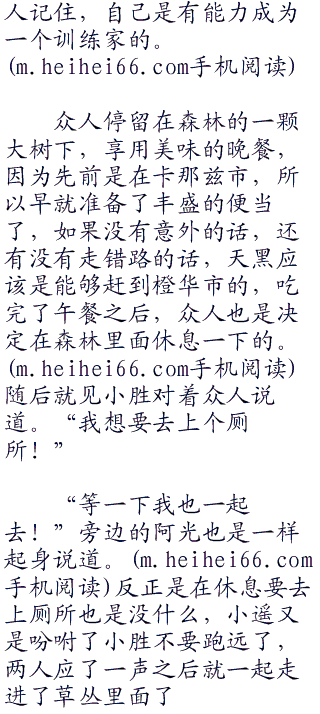 人记住，自己是有能力成为
一个训练家的。
(m.heihei66.com手机阅读)
众人停留在森林的一颗
大树下，享用美味的晚餐，
因为先前是在卡那兹市，所
以早就准备了丰盛的便当
了，如果没有意外的话，还
有没有走错路的话，天黑应
该是能够赶到橙华市的，吃
完了午餐之后，众人也是决
定在森林里面休息一下的。
(m.heihei66.com手机阅读)
随后就见小胜对着众人说
道。“我想要去上个厕
所！”
“等一下我也一起
去！”旁边的阿光也是一样
起身说道。(m.heihei66.com
手机阅读)反正是在休息要去
上厕所也是没什么，小遥又
是吩咐了小胜不要跑远了，
两人应了一声之后就一起走
进了草丛里面了